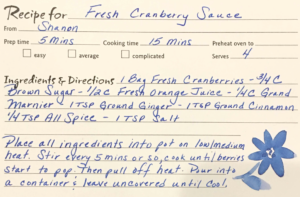 Recipe for Fresh Cranberry Sauce
From Shanon
Prep time 5 mins Cooking time 15 mins Preheat oven to
easy average complicated Serves 4
Ingredients & Directions 1 Bag Fresh Cranberries - 3/4 C
Brown Sugar - 1/2 C Fresh Orange Juice - 1/4 C Grand
Marnier - 1 TSP Ground Ginger - 1 TSP Ground Cinnamon
1/4 TSP All Spice - 1 TSP Salt
Place all ingredients into pot on low/medium
heat. Stir every 5 mins or so, cook until berries
start to pop then pull off heat. Pour into
a container & leave uncovered until cool.